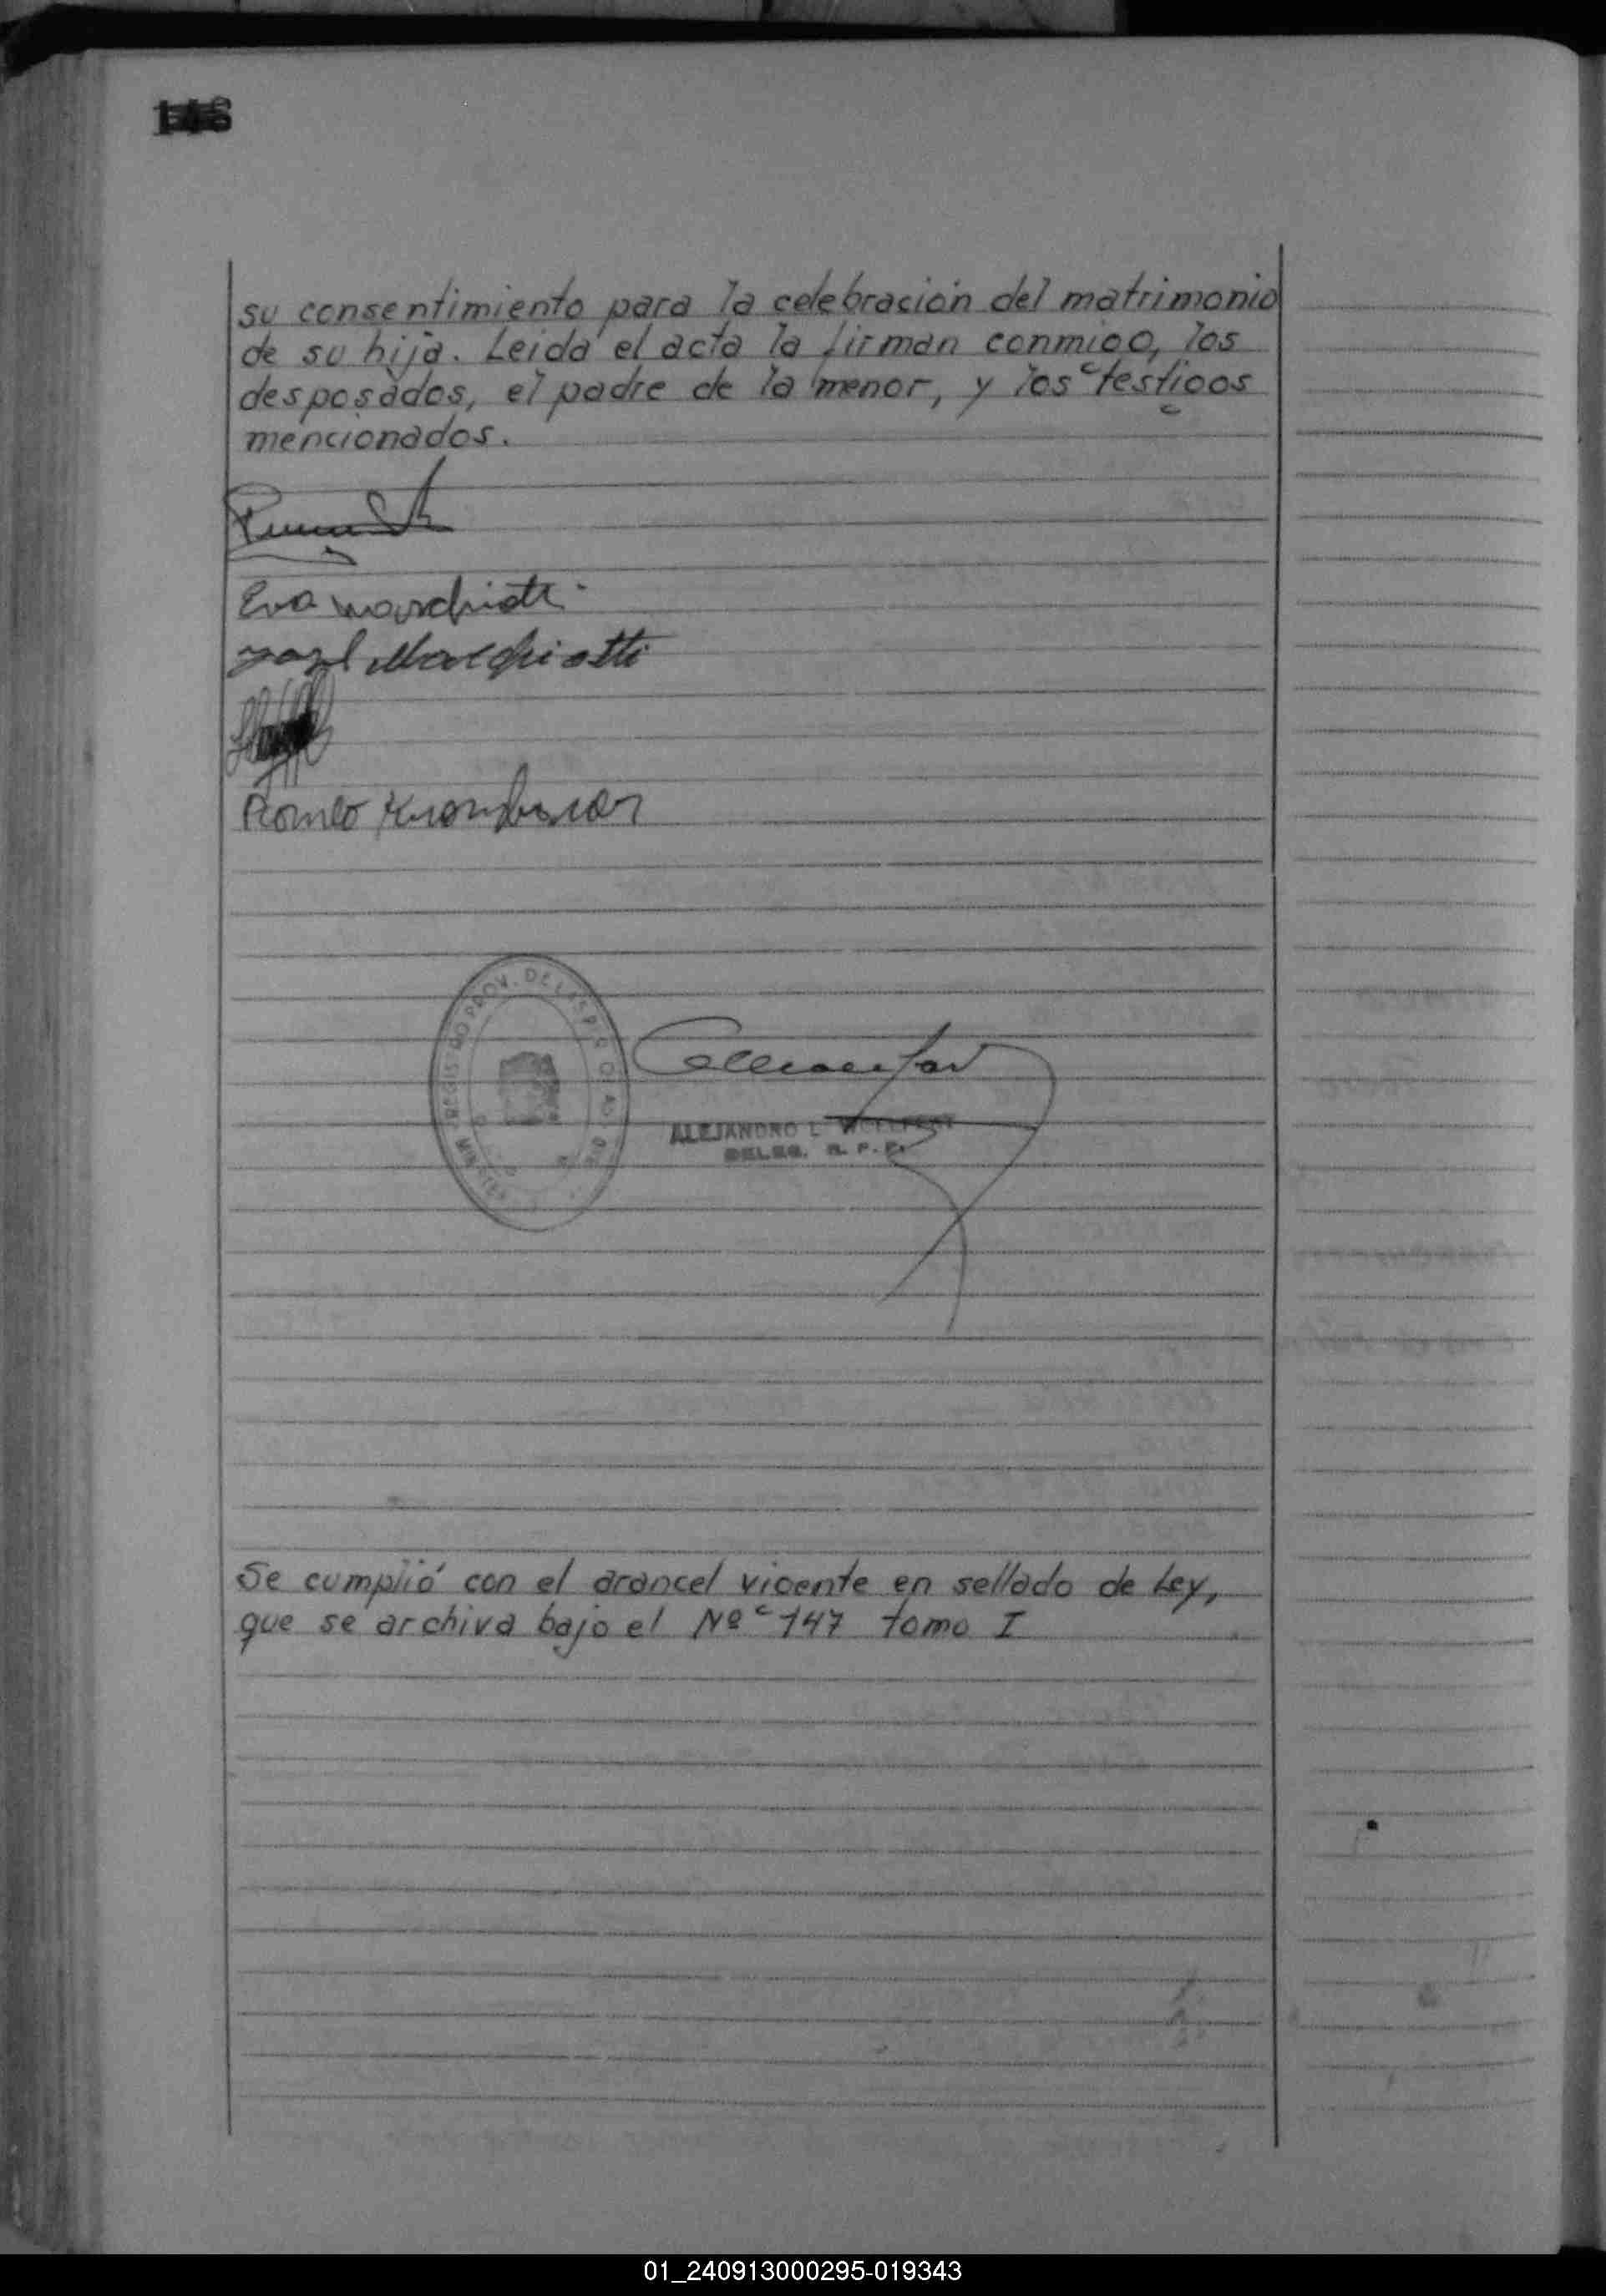 su consentimiento para la celebración del matrimonio
de su hija. Leida el acta la firman conmigo, los
desposados, el padre de la menor, y los testigos
mencionados.
Eva Marchiotti
Marchiotti
Romeo
REGISTRO PROV. DE LAS P
ALEJANDRO L.
DELEG. R. P. P.
Se cumplió con el arancel vigente en sellado de Ley,
que se archiva bajo el Nº 147 tomo I
01_240913000295-019343